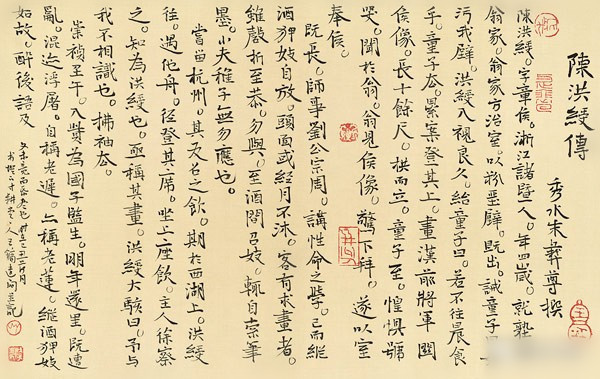 陳洪綬傳
秀水朱彝尊撰
陳洪綬。字章侯。浙江諸暨人。年四歲。就塾
翁家。翁家方治室。以粉堊壁。既出。誡童子
污我壁。洪綬入視良久。紿童子曰。若不往晨食
乎。童子去。累案登其上。畫漢前將軍關
侯像。長十餘尺。拱而立。童子至。惶懼號
哭。聞於翁。翁見侯像。驚下拜。遂以室
奉侯。
既長。師事劉公宗周。講性命之學。已而縱
酒狎妓自放。頭面或經月不沐。客有求畫者。
雖罄折至恭。勿與。至酒間召妓。輒自索筆
墨。小夫稚子無勿應也。
嘗留杭州。其友召之飲。期於西湖上。洪綬
往。遇他舟。徑登其席。坐上座飲。主人徐察
之。知為洪綬也。亟稱其畫。洪綬大駭曰。子與
我不相識也。拂袖去。
崇禎壬午。入貲為國子監生。明年還里。既遭
亂。混迹浮屠。自稱老遲。亦稱老蓮。縱酒狎妓
如故。醉後語及